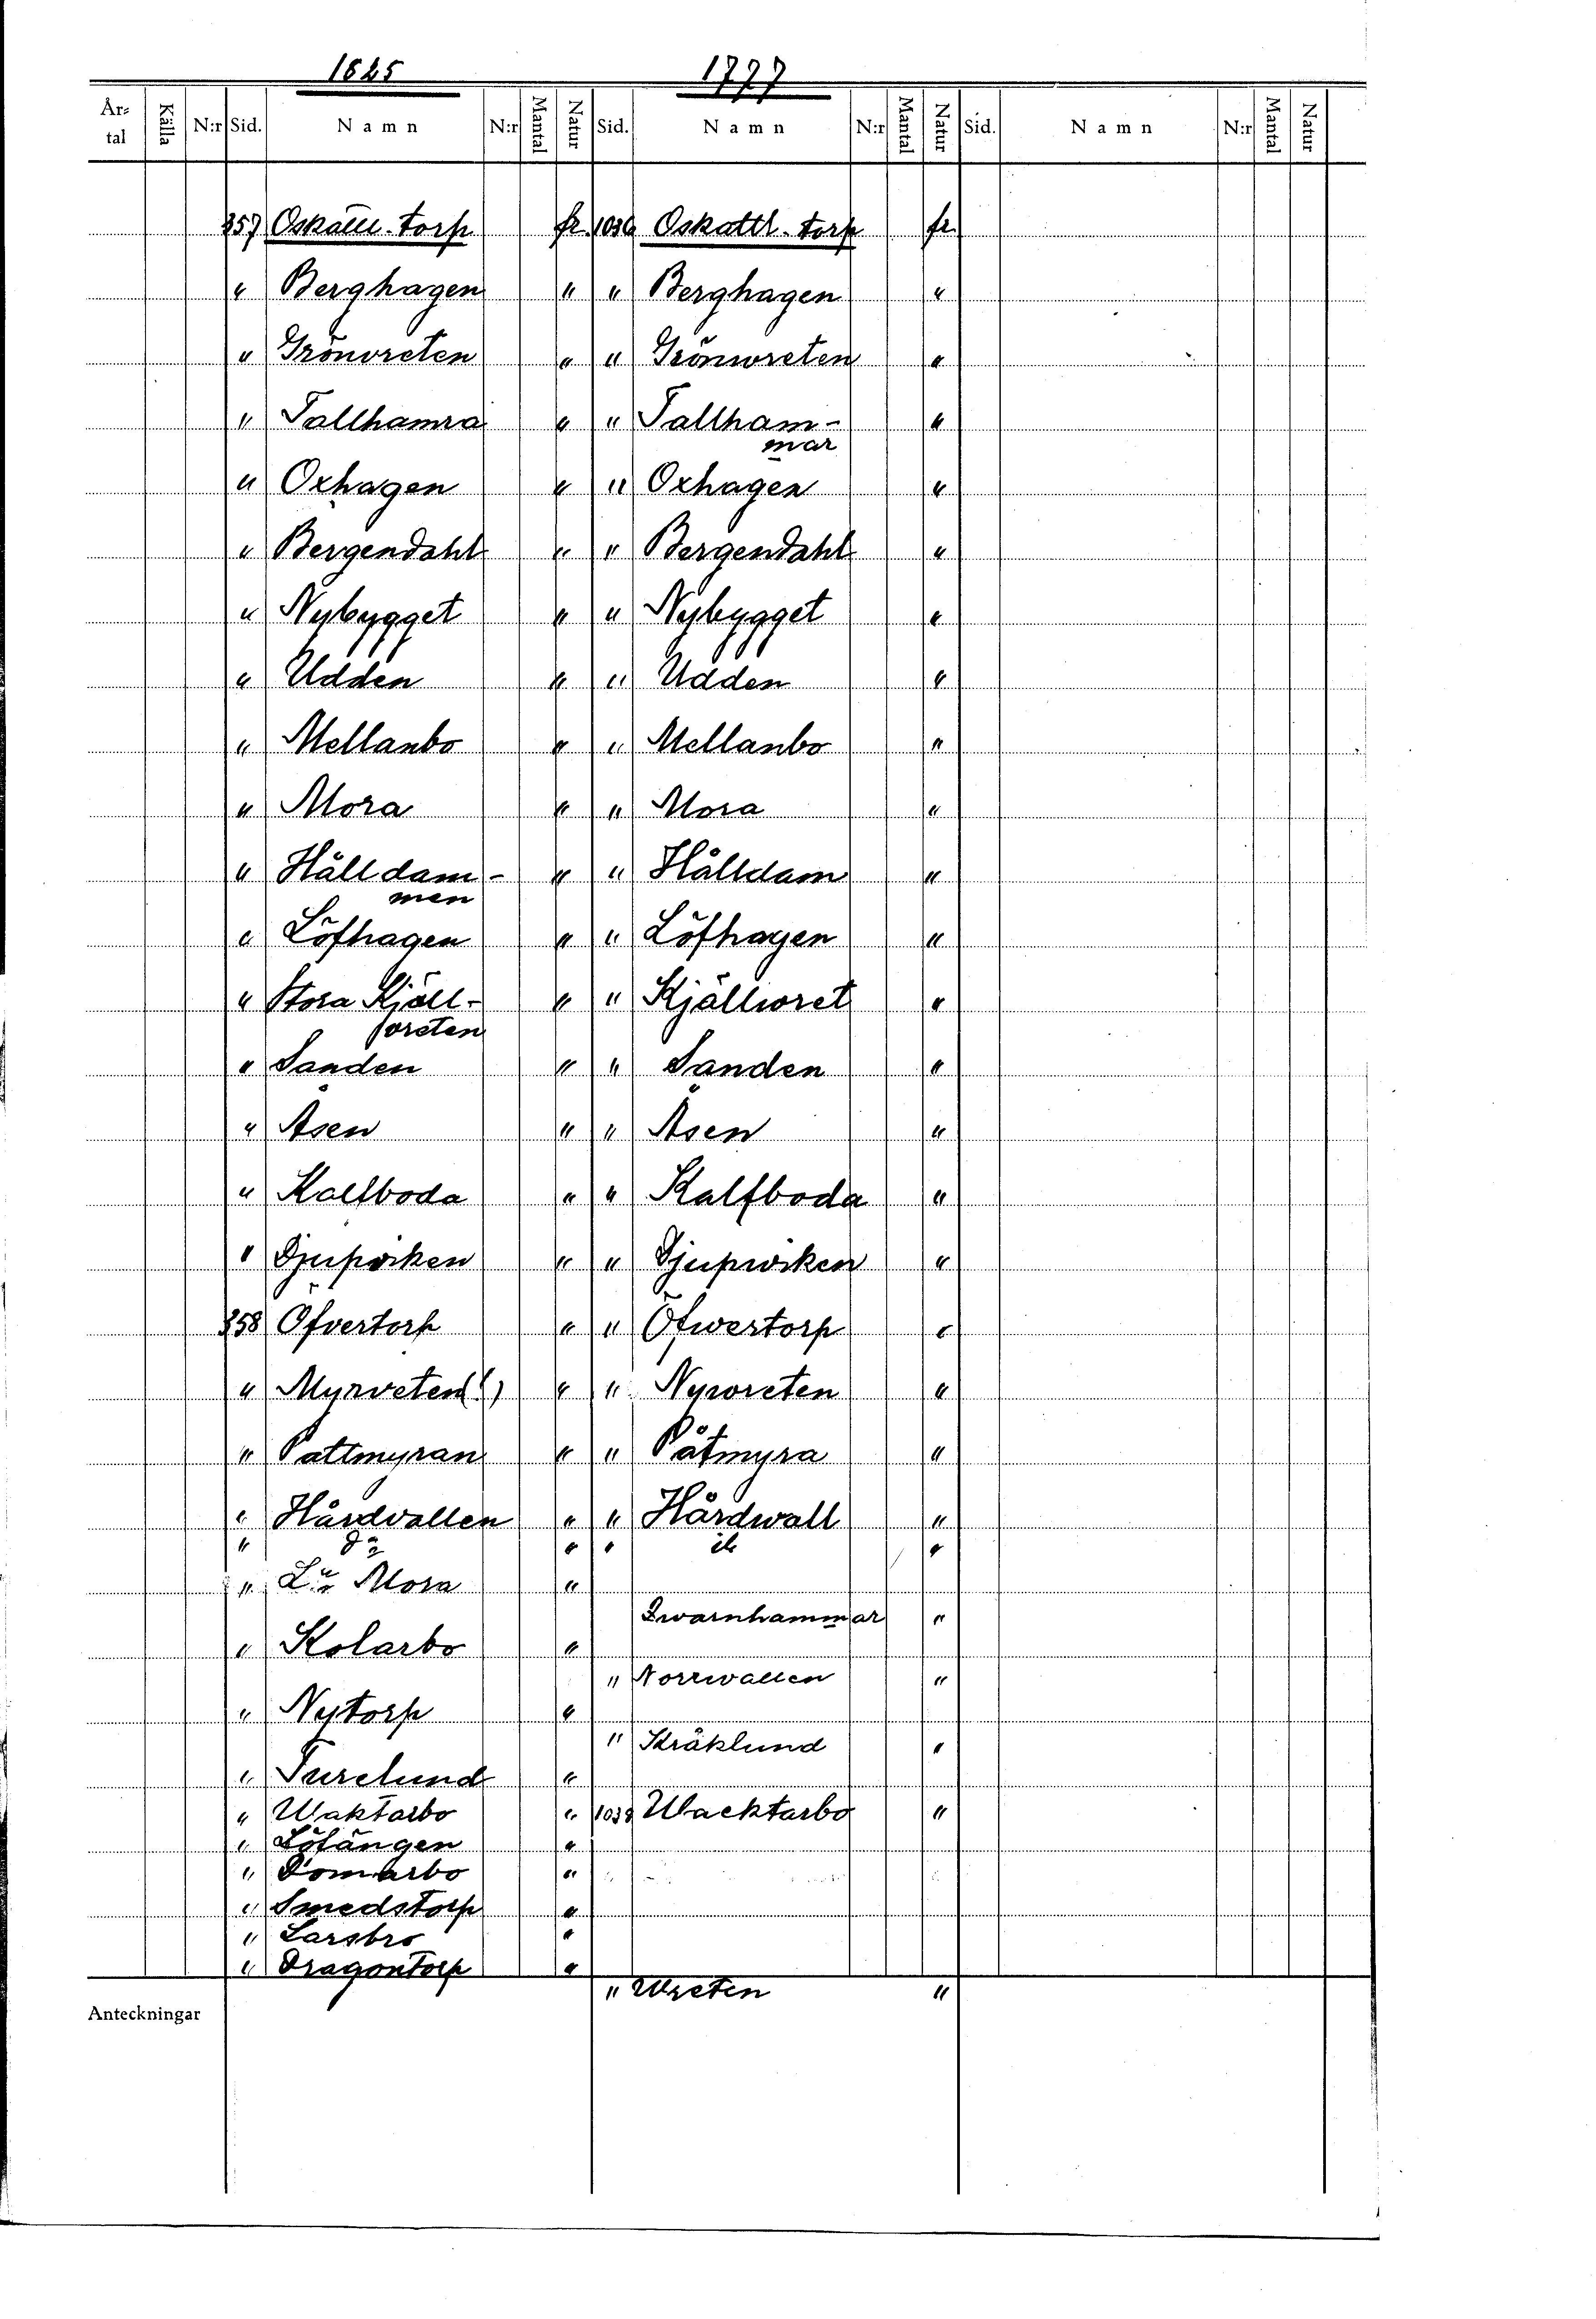 1825 1777
År-tal Källa N:r Sid. Namn N:r Mantal Natur Sid. Namn N:r Mantal Natur Sid. Namn N:r Mantal Natur
357 Oskattl. torp fr. 1036 Oskattl. torp fr.
" Berghagen " " Berghagen "
" Grönvreten " " Grönwreten "
" Tallhamra " " Tallham-
mar "
" Oxhagen " " Oxhagen "
" Bergendahl " " Bergendahl "
" Nybygget " " Nybygget "
" Udden " " Udden "
" Mellanbo " " Mellanbo "
" Mora " " Mora "
" Hälldam- " " Hålldam "
men
" Löfhagen " " Löfhagen "
" Stora Kjäll- " " Kjällwret "
vreten
" Sanden " " Sanden "
" Åsen " " Åsen "
" Kalfboda " " Kalfboda "
" Djupviken " " Djupwiken "
358 Öfvertorp " " Öfwertorp "
" Myrveten(!) " " Nywreten "
" Pattmyran " " Påtmyra "
" Hårdvallen " " Hårdwall "
" do " " "
" La Mora "
Qwarnhammar "
" Kolarbo "
" Norrwallen "
" Nytorp "
" Kråklund "
" Turelund "
" Waktarbo " 1038 Wacktarbo "
" Löfängen "
" Domarbo "
" Smedstorp "
" Larsbro "
" Dragontorp "
" Wreten "
Anteckningar